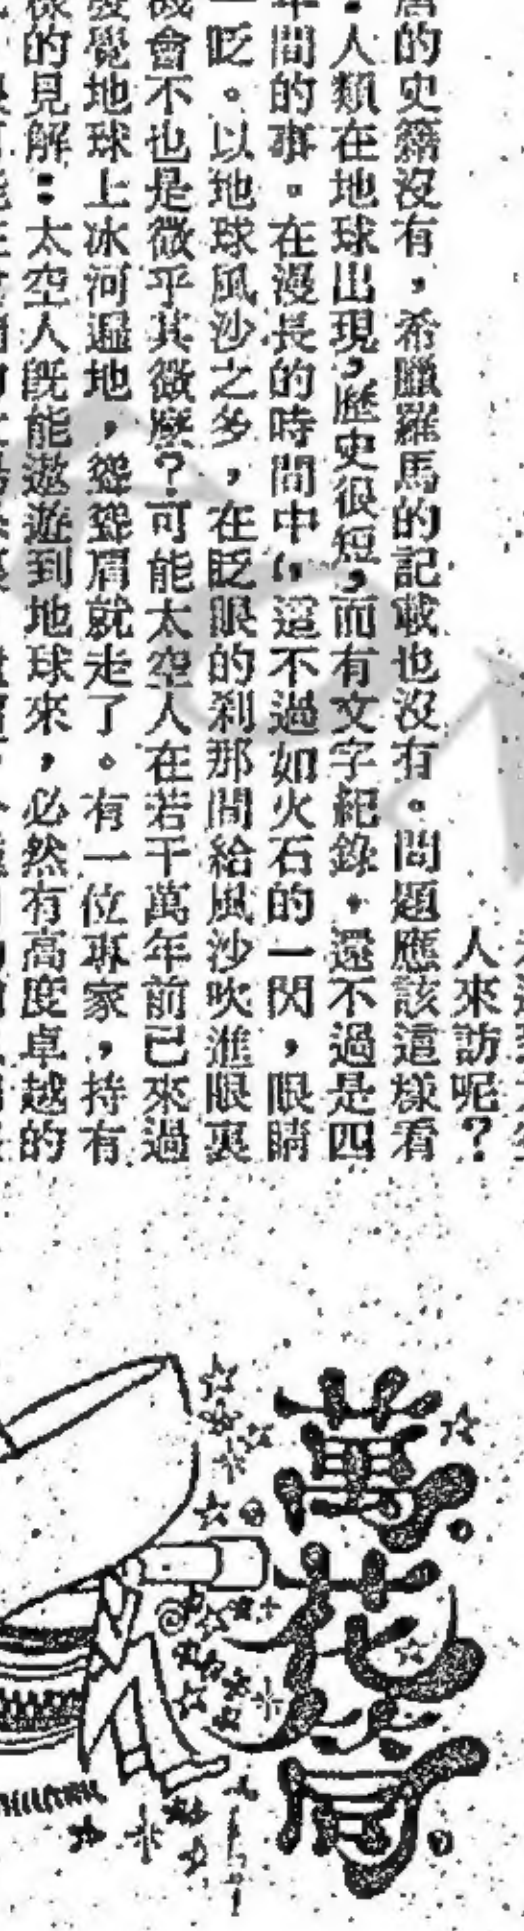 人來訪呢？
的史籍沒有，希臘羅馬的記載也沒有。問題應該這樣看
：人類在地球出現，歷史很短，而有文字紀錄，還不過是四
年間的事。在漫長的時間中，這不過如火石的一閃，眼睛
一眨。以地球風沙之多，在眨眼的刹那間給風沙吹進眼裏
機會不也是微乎其微麼？可能太空人在若干萬年前已來過
發覺地球上冰河遍地，聳聳眉就走了。有一位專家，持有
樣的見解：太空人既能遨遊到地球來，必然有高度卓越的
萬花筒